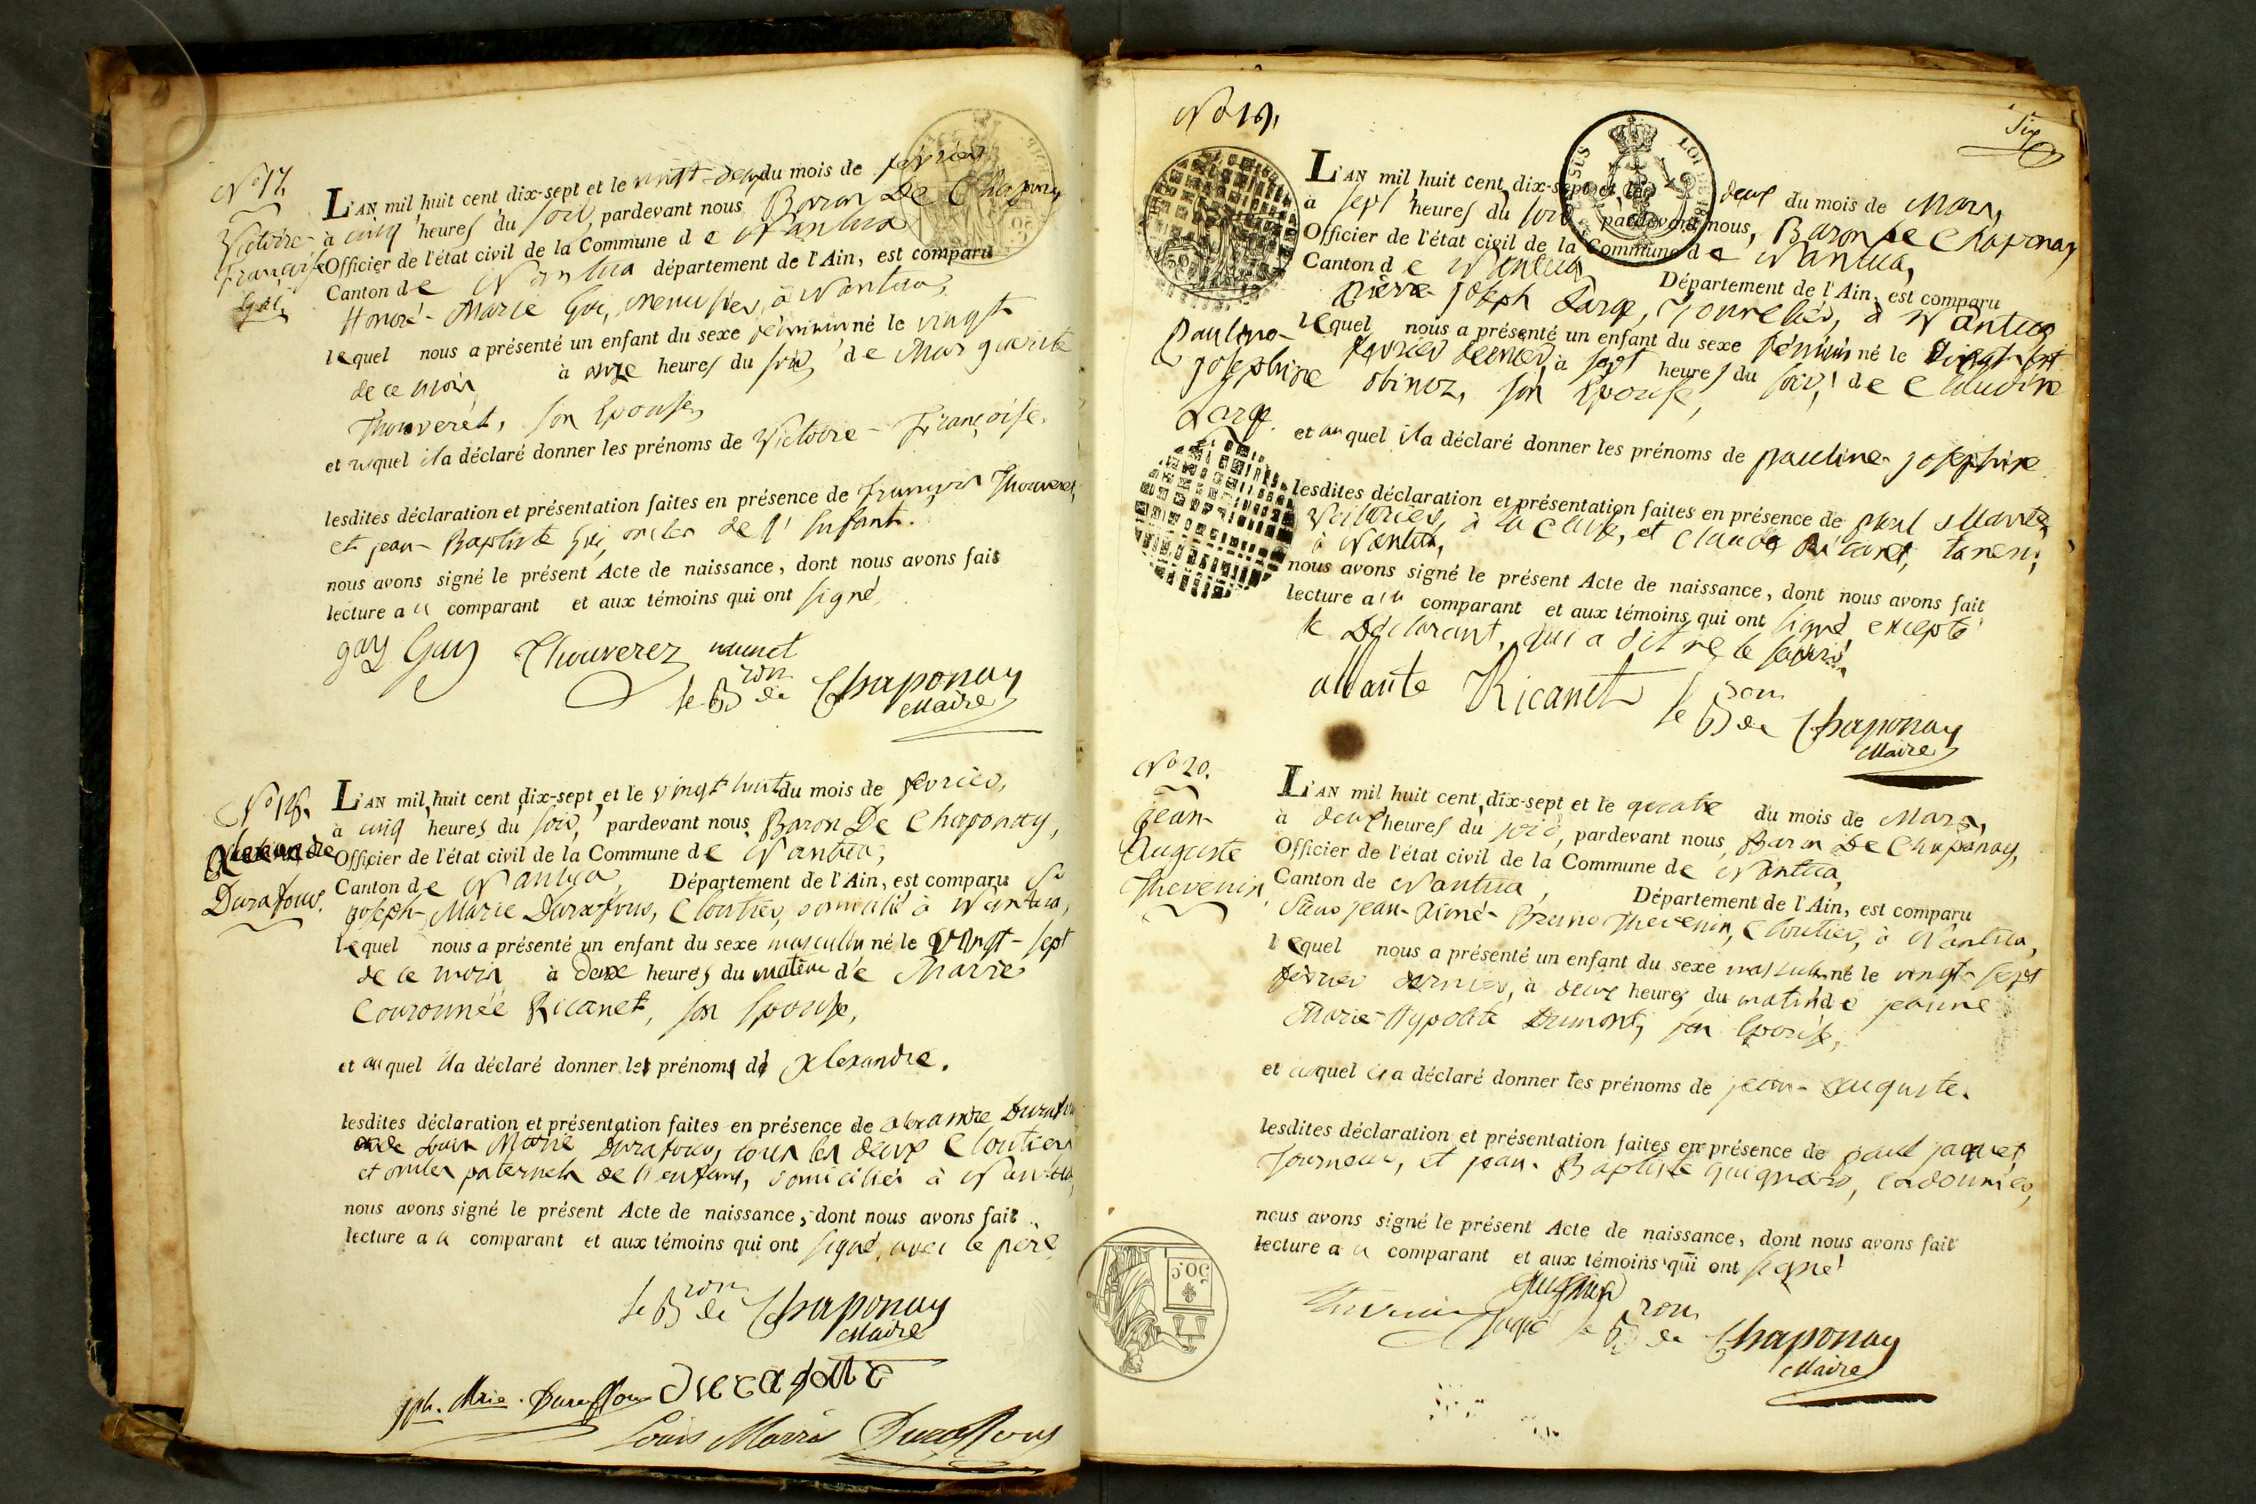 N° 17.
Victoire
Françoise
Gui.
L'AN mil huit cent dix-sept et le vingt-deux du mois de février
à cinq heures du soir, pardevant nous Baron De Chaponay
Officier de l'état civil de la Commune de Nantua
Canton de Nantua département de l'Ain, est comparu
Honoré-Marie Gui, menuisier, à Nantua,
lequel nous a présenté un enfant du sexe féminin né le vingt
de ce mois à onze heures du soir, de Marguerite
Thouverez, son Epouse,
et auquel il a déclaré donner les prénoms de Victoire-Françoise.
lesdites déclaration et présentation faites en présence de françois Thouverez,
et jean-Baptiste Gui, oncles de l'Enfant.
nous avons signé le présent Acte de naissance, dont nous avons fait
lecture au comparant et aux témoins qui ont signé,
gay Guy Thouverez
le Bron de Chaponay
Maire
N° 18.
Alexandre
Durafour.
L'AN mil huit cent dix-sept et le vingt huit du mois de février,
à cinq heures du soir, pardevant nous Baron De Chaponay,
Officier de l'état civil de la Commune de Nantua,
Canton de Nantua Département de l'Ain, est comparu Sr
joseph-Marie Durafour, Cloutier, domicilié à Nantua,
lequel nous a présenté un enfant du sexe masculin né le vingt-sept
de ce mois à deux heures du matin de Marie
Couronnée Ricanet, son Epouse,
et auquel il a déclaré donner les prénoms de Alexandre.
lesdites déclaration et présentation faites en présence de alexandre Durafour
Louis Marie Durafour, tous les deux Cloutiers
et oncles paternels de l'enfant, domiciliés à Nantua,
nous avons signé le présent Acte de naissance, dont nous avons fait
lecture au comparant et aux témoins qui ont signé, avec le père
le Bron de Chaponay
Maire
jph. Mrie. Duraffour durafour
Louis Marie Duraffour
N° 19.
Six
Pauline
josephine
Large.
L'AN mil huit cent dix-sept et le deux du mois de Mars,
à sept heures du soir pardevant nous, Baron De Chaponay
Officier de l'état civil de la Commune de Nantua,
Canton de Nantua Département de l'Ain, est comparu
pierre joseph Large, à Nantua
lequel nous a présenté un enfant du sexe féminin né le vingt sept
février dernier, à sept heures du soir, de Claudine
obinoz, son Epouse,
et auquel il a déclaré donner les prénoms de pauline-josephine
lesdites déclaration et présentation faites en présence de paul Mante,
Voiturier, à la Cluse, et Claude Ricanet,
à Nantua,
nous avons signé le présent Acte de naissance, dont nous avons fait
lecture au comparant et aux témoins qui ont signé, excepté
le Déclarant, qui a dit ne le savoir.
Mante Ricanet le Bron de Chaponay
Maire
N° 20.
jean-
Auguste
Thevenin.
L'AN mil huit cent dix-sept et le quatre du mois de Mars,
à deux heures du soir, pardevant nous Baron De Chaponay,
Officier de l'état civil de la Commune de Nantua,
Canton de Nantua, Département de l'Ain, est comparu
Sieur jean-Aimé-Bruno Thevenin, Cloutier, à Nantua,
lequel nous a présenté un enfant du sexe masculin né le vingt-sept
février dernier, à deux heures du matin de jeanne
Marie-Hypolite Dumont, son Epouse,
et auquel il a déclaré donner les prénoms de jean-auguste.
lesdites déclaration et présentation faites en présence de paul jaquet
Tourneur, et jean-Baptiste Guignard, cordonnier,
nous avons signé le présent Acte de naissance, dont nous avons fait
lecture au comparant et aux témoins qui ont signé
Guignard
Thevenin Jaquet le Bron de Chaponay
Maire
50 C